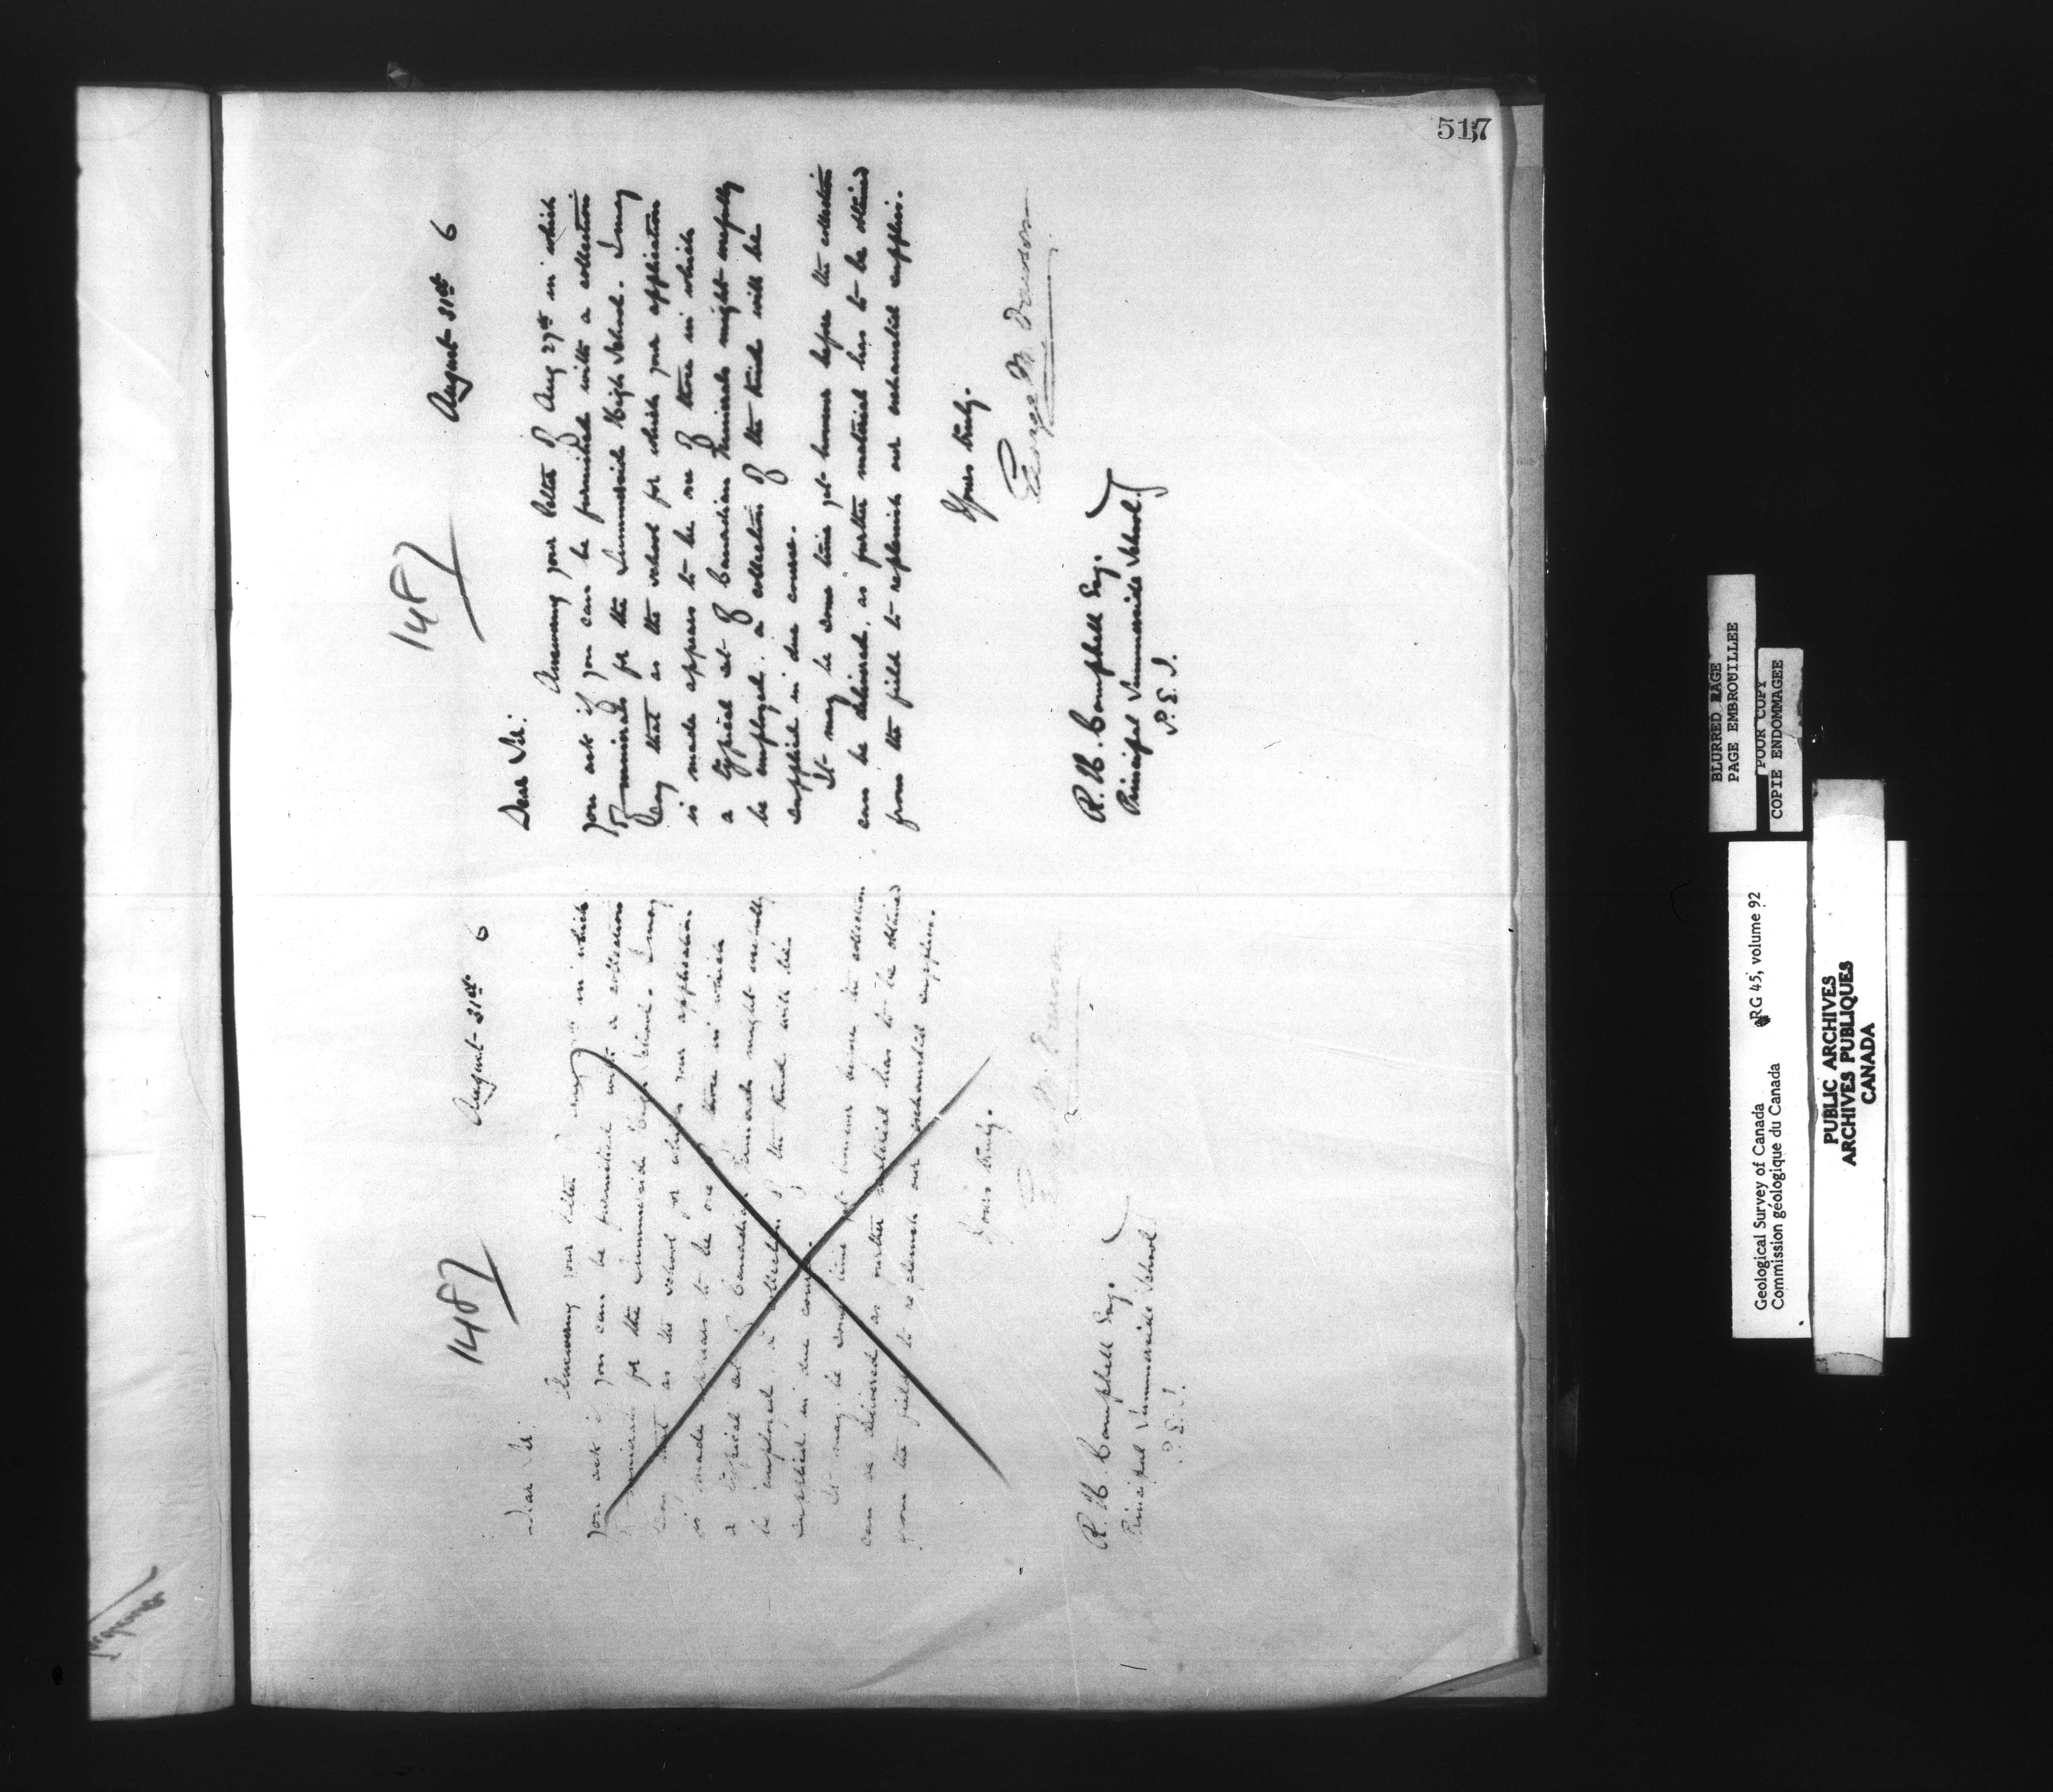 517
1487
August 31st 6
Dear Sir:
Answering your letter of Aug 27th in which
you ask if you can be furnished with a collection
of minerals for the Summerside High School. I may
say that as the school for which your application
is made appears to be one of those in which
a typical set of Canadian minerals might usefully
be employed, a collection of the kind will be
supplied in due course.
It may be some time yet however before the collection
can be delivered, as further material has to be obtained
from the field to replenish our exhausted supplies.
Yours truly.
George M. Dawson
R. H. Campbell Esq.
Principal Summerside School.
P.E.I.
1487
August 31st 6
Dear Sir
Answering your letter in which
you ask if you can be furnished with a collection
minerals for the Summerside High School. I may
say that as the school for which your application
is made appears to be one of those in which
a typical set of Canadian minerals might usefully
be employed, a collection of the kind will be
supplied in due course.
It may be some time yet however before the collection
can be delivered as further material has to be obtained
from the field to replenish our exhausted supplies.
Yours truly.
M. Dawson
R. H. Campbell Esq.
Principal Summerside School
P.E.I.
BLURRED PAGE
PAGE EMBROUILLEE
POOR COPY
COPIE ENDOMMAGEE
Geological Survey of Canada RG 45, volume 92
Commission géologique du Canada
PUBLIC ARCHIVES
ARCHIVES PUBLIQUES
CANADA